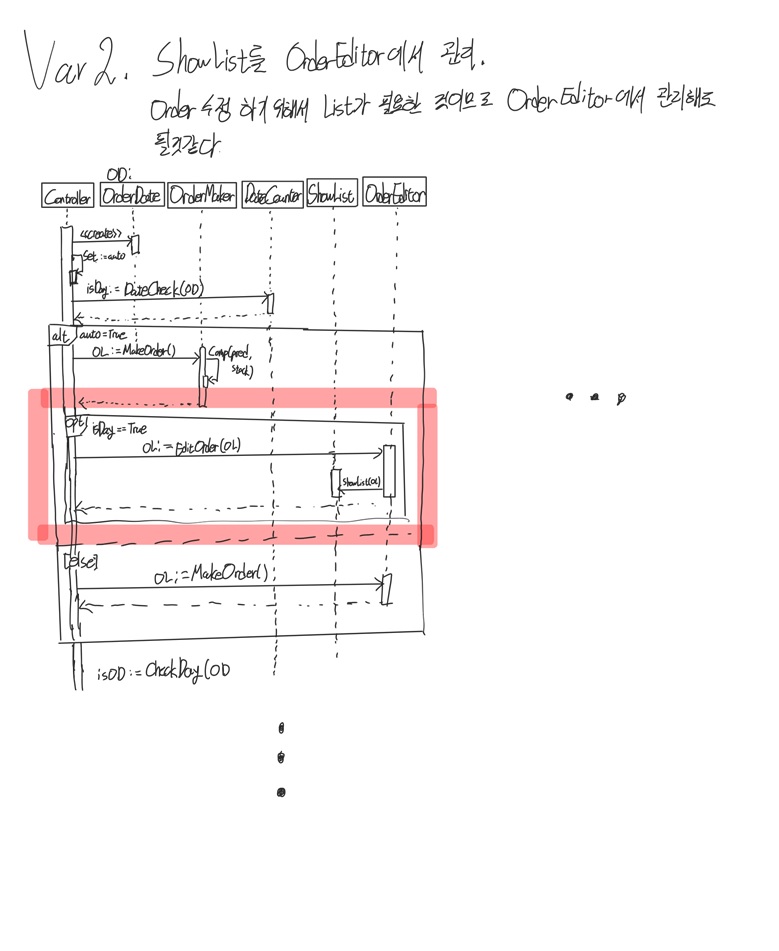 Var 2. ShowList를 OrderEditor에서 관리.
Order 수정 하기 위해서 List가 필요한 것이므로 OrderEditor에서 관리해도
될것같다
OD:
Controller OrderDate OrderMaker DateCounter ShowList OrderEditor
<<create>>
Set:=auto
isDay:=DateCheck(OD)
alt auto=True
OL:=MakeOrder() Comp(pred,
stock)
opt isDay==True
OL:=EditOrder(OL)
ShowList(OL)
[else]
OL:=MakeOrder()
isOD:=CheckDay(OD